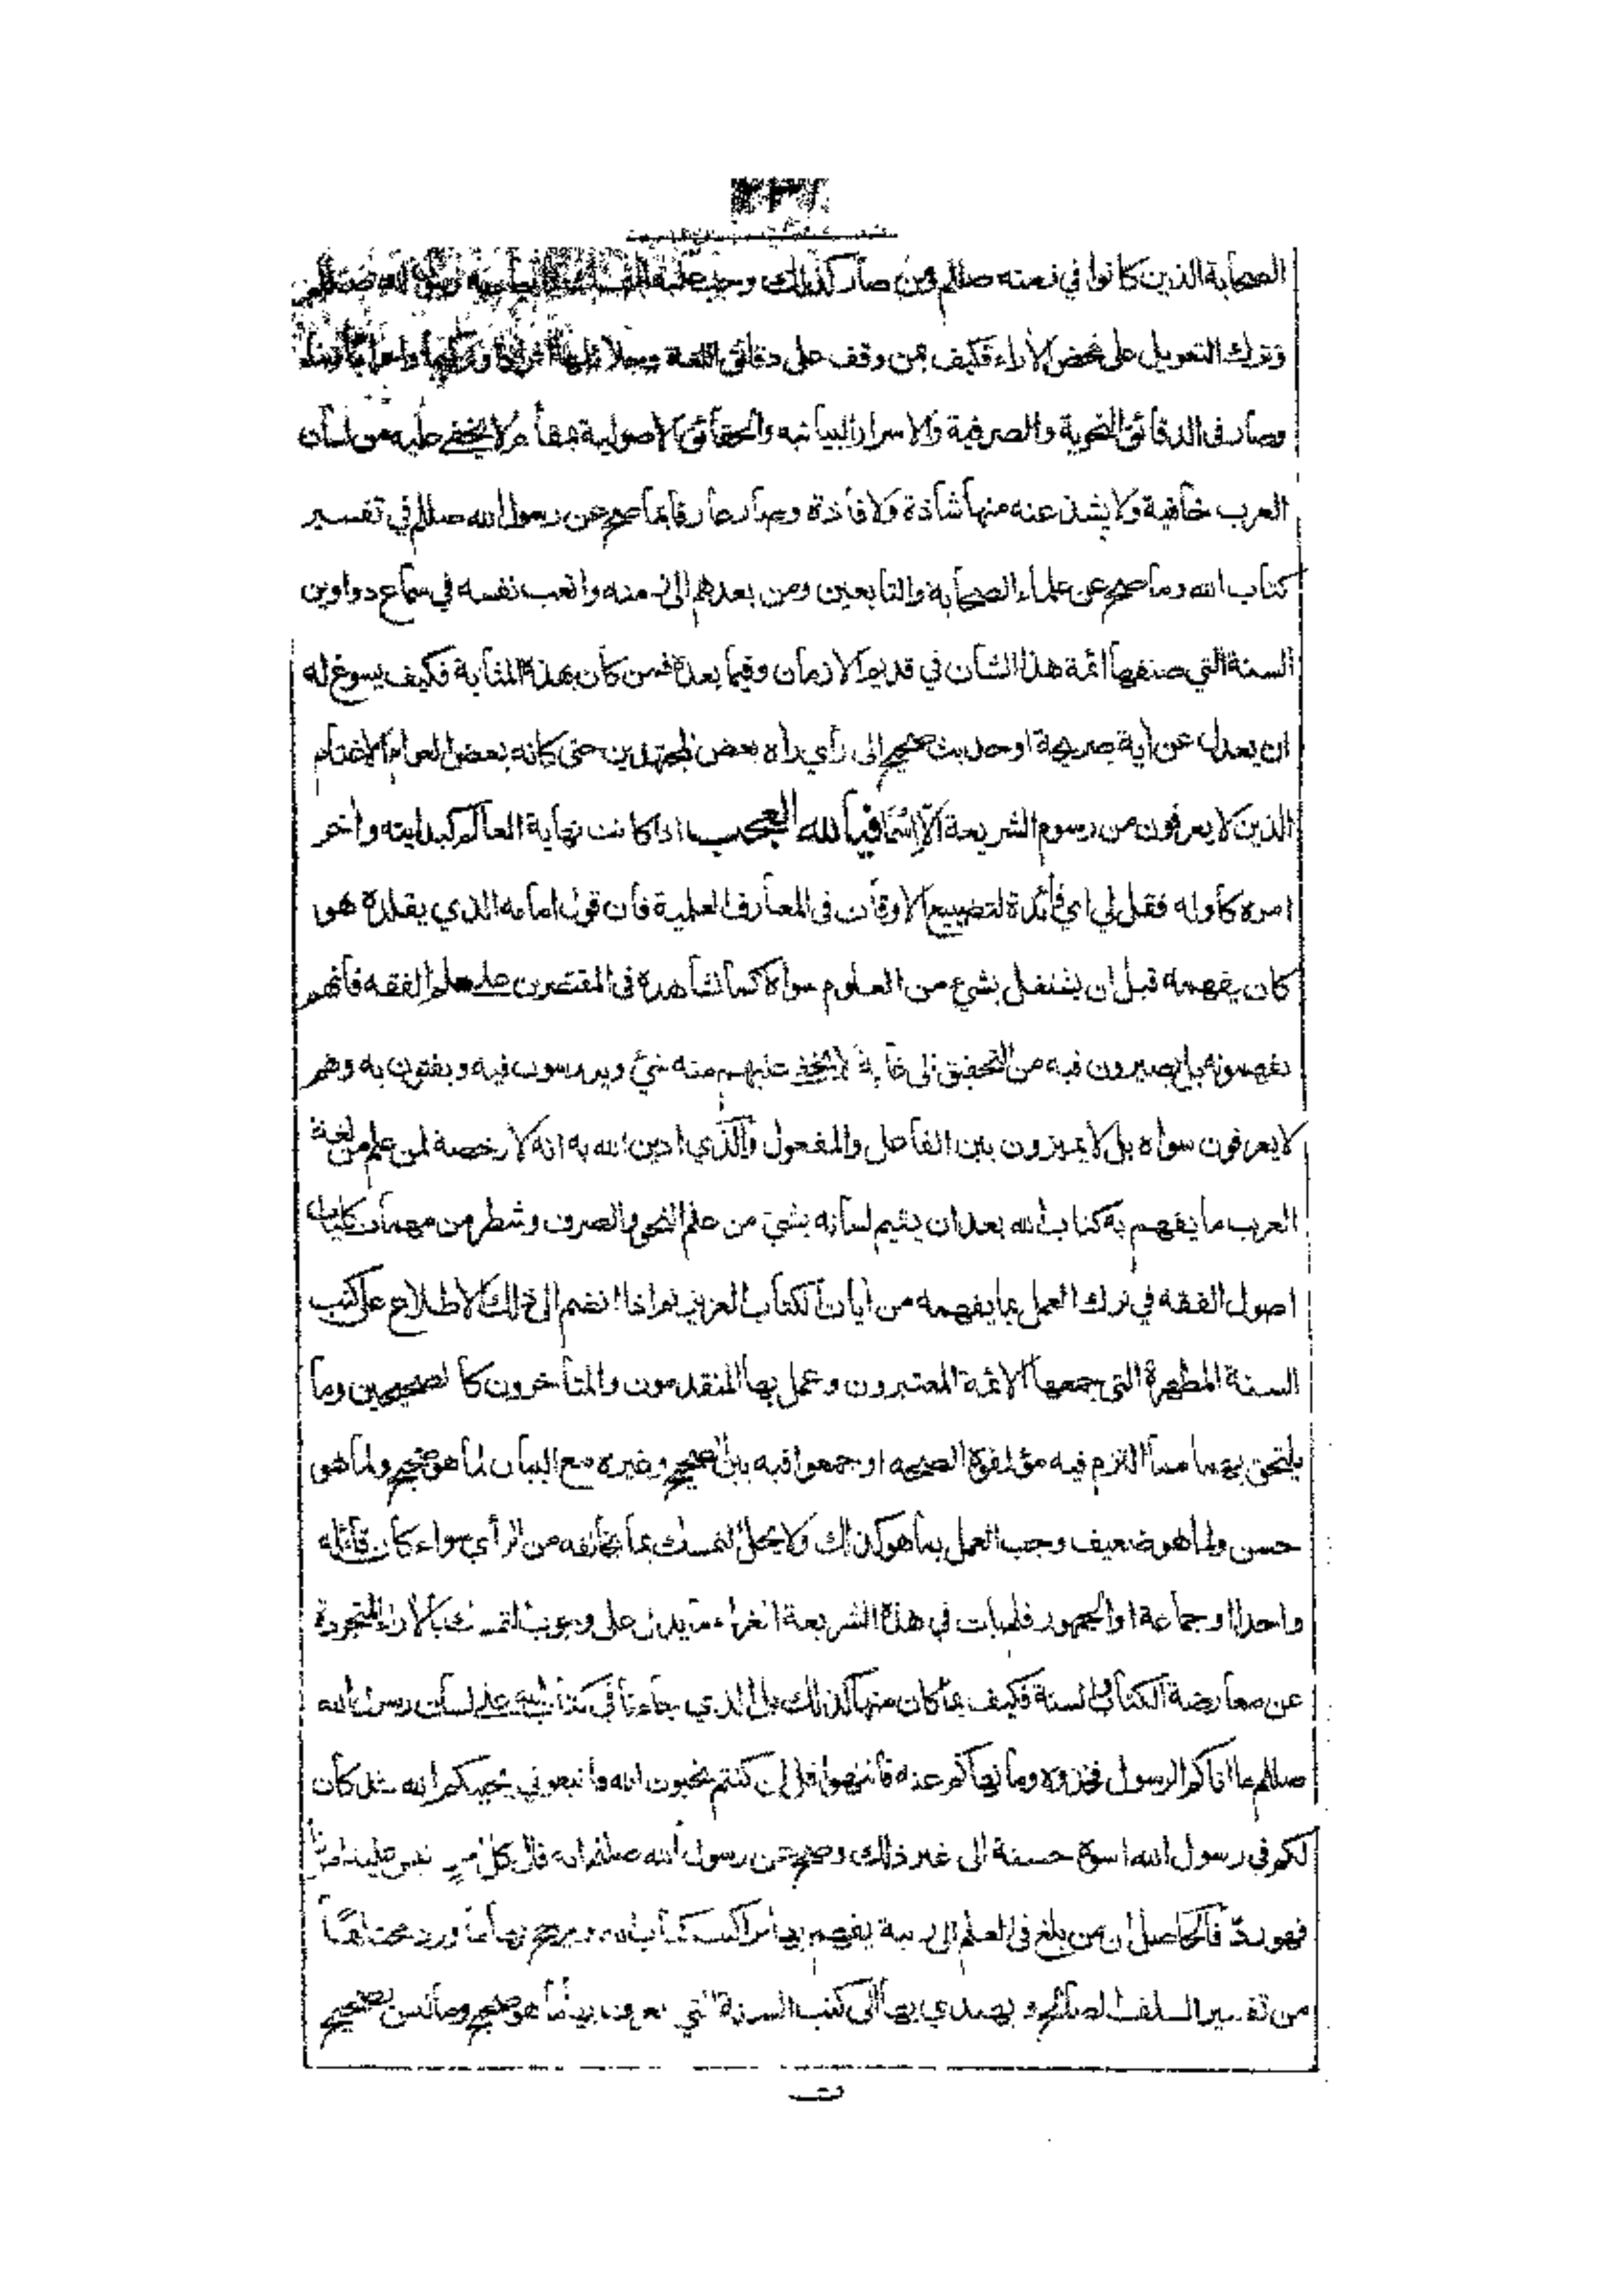 الصحابة الذين كانوا في زمنه صللم ومن صار كذلك وجب عليه
وترك التعويل على محض الأراء فكيف بمن وقف على دقائق اللغة وجلائلها افرادا وتركيبا واعرابا وبناء
وصار في الدقائق النحوية والصرفية والاسرار البيانيه والحقائق الاصولية بمقام لا يخفى عليه من لسان
العرب خافية ولا يشذ عنه منها شاذة ولا فاذة وصار عارفا بما صح عن رسول الله صللم في تفسير
كتاب الله وما صح عن علماء الصحابة والتابعين ومن بعدهم الى زمنه واتعب نفسه في سماع دواوين
السنة التي صنفها ائمة هذا الشان في قديم الازمان وفيما بعده فمن كان بهذه المثابة فكيف يسوغ له
ان يعدل عن اية صريحة او حديث صحيح الى رأي راه بعض المجتهدين حتى كانه بعض العوام الاغتام
الذين لا يعرفون من رسوم الشريعة الا اسما فيالله العجب اذا كانت نهاية العالم كبدايته وأخر
امره كاوله فقل لي اي فائدة لتضييع الاوقات في المعارف العلمية فان قول امامه الذي يقلده هو
كان يفهمه قبل ان يشتغل بشيء من العلوم سواه كما نشاهده في المقتصرين على علم الفقه فانهم
يفهمونه بل يصيرون فيه من التحقيق الى غاية لا يخفى عليهم منه شيء ويدرسون فيه ويفتون به وهم
لا يعرفون سواه بل لا يميزون بين الفاعل والمفعول والذي ادين الله به انه لا رخصة لمن علم من لغة
العرب ما يفهم به كتاب الله بعد ان يقيم لسانه بشيء من علم النحو والصرف وشطر من مهمات كليات
اصول الفقه في ترك العمل بما يفهمه من أيات الكتاب العزيز ثم اذا انضم الى ذلك الاطلاع على كتب
السنة المطهرة التي جمعها الائمة المعتبرون وعمل بها المتقدمون والمتأخرون كالصحيحين وما
يلتحق بهما مما التزم فيه مؤلفوه الصحه او جمعوا فيه بين الصحيح وغيره مع البيان لما هو صحيح ولما هو
حسن ولما هو ضعيف وجب العمل بما هو كذلك ولا يحل التمسك بما يخالفه من الرأي سواء كان قائله
واحدا او جماعة او الجمهور فلم يات في هذه الشريعة الغراء ما يدل على وجوب التمسك بالأراء المتجردة
عن معارضة الكتاب والسنة فكيف بما كان منها كذلك بل الذي جاءنا في كتاب الله على لسان رسول الله
صللم ما اتاكم الرسول فخذوه وما نهاكم عنه فانتهوا قل ان كنتم تحبون الله فاتبعوني يحببكم الله لقد كان
لكم في رسول الله اسوة حسنة الى غير ذلك وصح عن رسول الله صللم انه قال كل امر ليس عليه امرنا
فهو ردّ فالحاصل ان من بلغ في العلم الى رتبة يفهم بها تراكيب كتاب الله ويرجح بها ما ورد مختلفا
من تفسير السلف الصالح ويهتدي بها الى كتب السنة التي يعرف بها ما هو صحيح وما ليس بصحيح